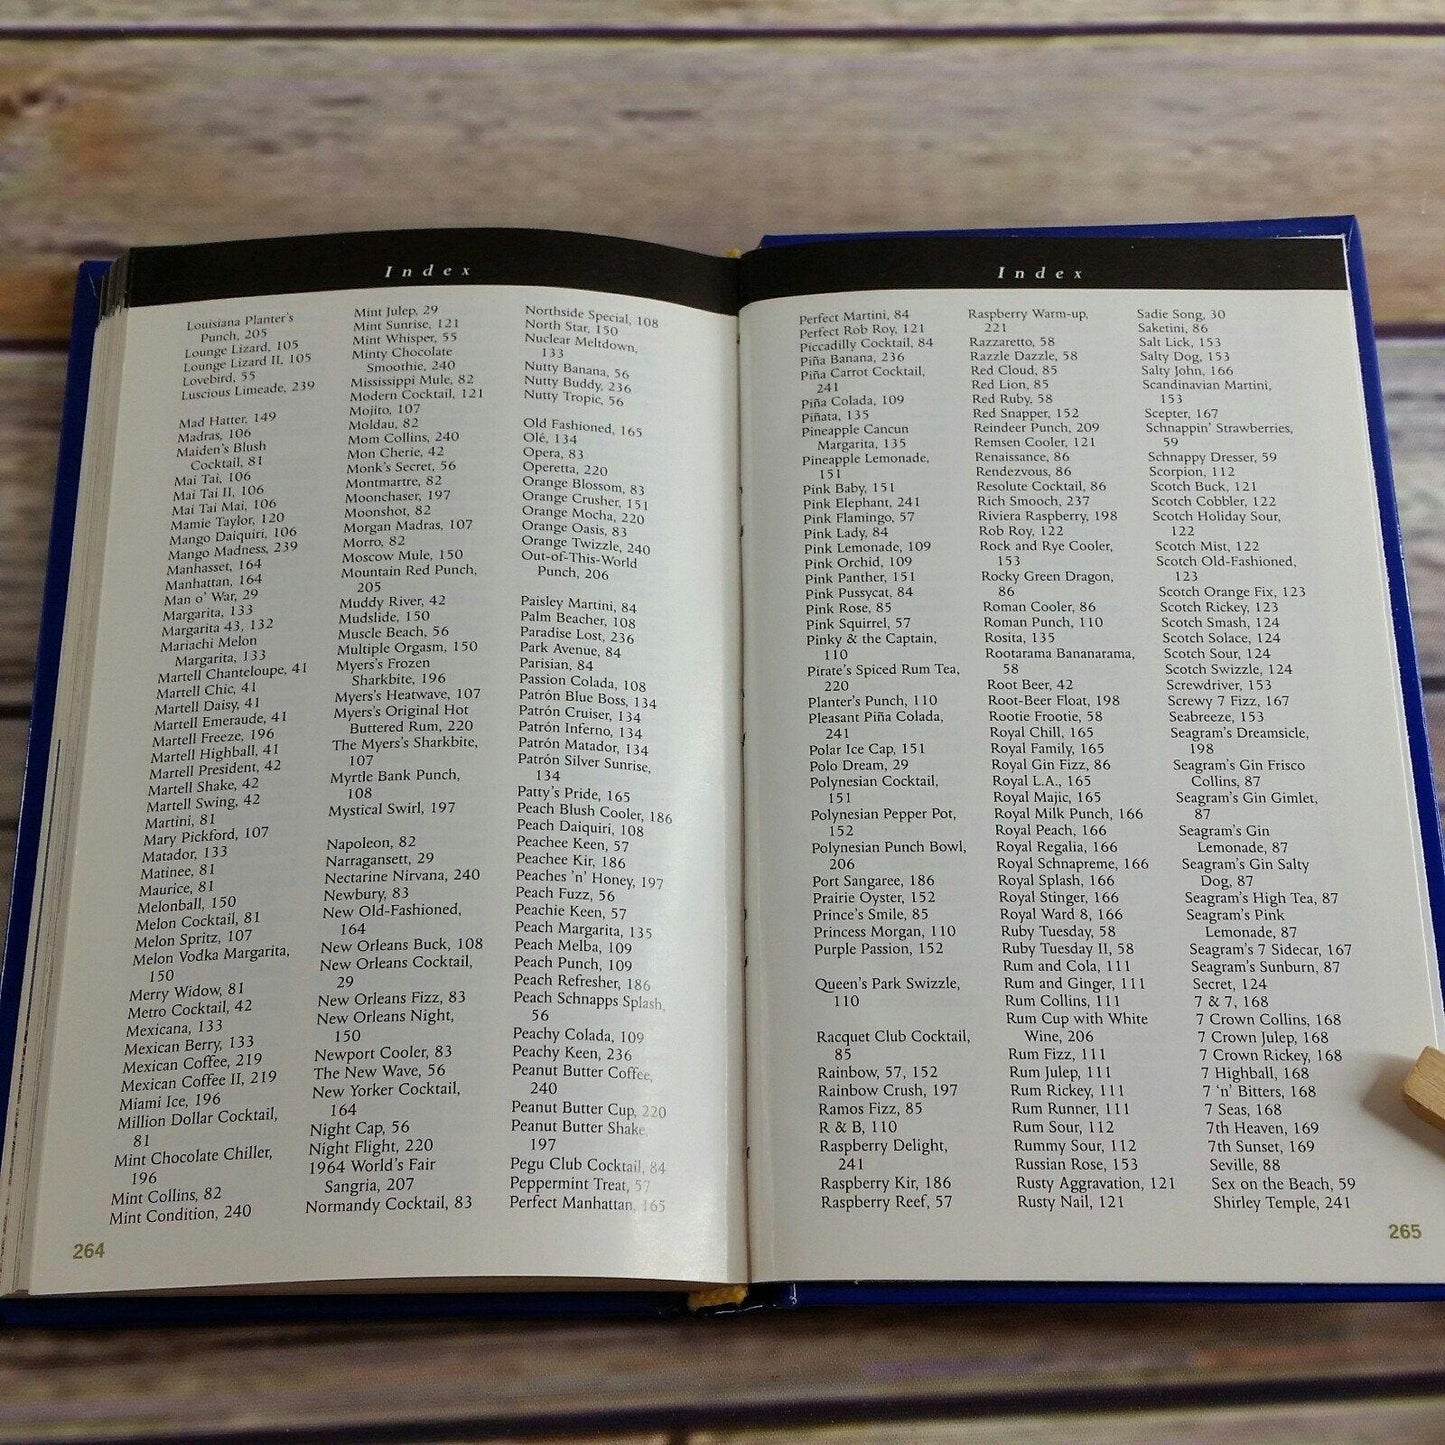 Index
Louisiana Planter's
Punch, 205
Lounge Lizard, 105
Lounge Lizard II, 105
Lovebird, 55
Luscious Limeade, 239
Mad Hatter, 149
Madras, 106
Maiden's Blush
Cocktail, 81
Mai Tai, 106
Mai Tai II, 106
Mai Tai Mai, 106
Mamie Taylor, 120
Mango Daiquiri, 106
Mango Madness, 239
Manhasset, 164
Manhattan, 164
Man o' War, 29
Margarita, 133
Margarita 43, 132
Mariachi Melon
Margarita, 133
Martell Chanteloupe, 41
Martell Chic, 41
Martell Daisy, 41
Martell Emeraude, 41
Martell Freeze, 196
Martell Highball, 41
Martell President, 42
Martell Shake, 42
Martell Swing, 42
Martini, 81
Mary Pickford, 107
Matador, 133
Matinee, 81
Maurice, 81
Melonball, 150
Melon Cocktail, 81
Melon Spritz, 107
Melon Vodka Margarita,
150
Merry Widow, 81
Metro Cocktail, 42
Mexicana, 133
Mexican Berry, 133
Mexican Coffee, 219
Mexican Coffee II, 219
Miami Ice, 196
Million Dollar Cocktail,
81
Mint Chocolate Chiller,
196
Mint Collins, 82
Mint Condition, 240
Mint Julep, 29
Mint Sunrise, 121
Mint Whisper, 55
Minty Chocolate
Smoothie, 240
Mississippi Mule, 82
Modern Cocktail, 121
Mojito, 107
Moldau, 82
Mom Collins, 240
Mon Cherie, 42
Monk's Secret, 56
Montmartre, 82
Moonchaser, 197
Moonshot, 82
Morgan Madras, 107
Morro, 82
Moscow Mule, 150
Mountain Red Punch,
205
Muddy River, 42
Mudslide, 150
Muscle Beach, 56
Multiple Orgasm, 150
Myers's Frozen
Sharkbite, 196
Myers's Heatwave, 107
Myers's Original Hot
Buttered Rum, 220
The Myers's Sharkbite,
107
Myrtle Bank Punch,
108
Mystical Swirl, 197
Napoleon, 82
Narragansett, 29
Nectarine Nirvana, 240
Newbury, 83
New Old-Fashioned,
164
New Orleans Buck, 108
New Orleans Cocktail,
29
New Orleans Fizz, 83
New Orleans Night,
150
Newport Cooler, 83
The New Wave, 56
New Yorker Cocktail,
164
Night Cap, 56
Night Flight, 220
1964 World's Fair
Sangria, 207
Normandy Cocktail, 83
Northside Special, 108
North Star, 150
Nuclear Meltdown,
133
Nutty Banana, 56
Nutty Buddy, 236
Nutty Tropic, 56
Old Fashioned, 165
Olé, 134
Opera, 83
Operetta, 220
Orange Blossom, 83
Orange Crusher, 151
Orange Mocha, 220
Orange Oasis, 83
Orange Twizzle, 240
Out-of-This-World
Punch, 206
Paisley Martini, 84
Palm Beacher, 108
Paradise Lost, 236
Park Avenue, 84
Parisian, 84
Passion Colada, 108
Patrón Blue Boss, 134
Patrón Cruiser, 134
Patrón Inferno, 134
Patrón Matador, 134
Patrón Silver Sunrise,
134
Patty's Pride, 165
Peach Blush Cooler, 186
Peach Daiquiri, 108
Peachee Keen, 57
Peachee Kir, 186
Peaches 'n' Honey, 197
Peach Fuzz, 56
Peachie Keen, 57
Peach Margarita, 135
Peach Melba, 109
Peach Punch, 109
Peach Refresher, 186
Peach Schnapps Splash,
56
Peachy Colada, 109
Peachy Keen, 236
Peanut Butter Coffee,
240
Peanut Butter Cup, 220
Peanut Butter Shake,
197
Pegu Club Cocktail, 84
Peppermint Treat, 57
Perfect Manhattan, 165
264
Index
Perfect Martini, 84
Perfect Rob Roy, 121
Piccadilly Cocktail, 84
Piña Banana, 236
Piña Carrot Cocktail,
241
Piña Colada, 109
Piñata, 135
Pineapple Cancun
Margarita, 135
Pineapple Lemonade,
151
Pink Baby, 151
Pink Elephant, 241
Pink Flamingo, 57
Pink Lady, 84
Pink Lemonade, 109
Pink Orchid, 109
Pink Panther, 151
Pink Pussycat, 84
Pink Rose, 85
Pink Squirrel, 57
Pinky & the Captain,
110
Pirate's Spiced Rum Tea,
220
Planter's Punch, 110
Pleasant Piña Colada,
241
Polar Ice Cap, 151
Polo Dream, 29
Polynesian Cocktail,
151
Polynesian Pepper Pot,
152
Polynesian Punch Bowl,
206
Port Sangaree, 186
Prairie Oyster, 152
Prince's Smile, 85
Princess Morgan, 110
Purple Passion, 152
Queen's Park Swizzle,
110
Racquet Club Cocktail,
85
Rainbow, 57, 152
Rainbow Crush, 197
Ramos Fizz, 85
R & B, 110
Raspberry Delight,
241
Raspberry Kir, 186
Raspberry Reef, 57
Raspberry Warm-up,
221
Razzaretto, 58
Razzle Dazzle, 58
Red Cloud, 85
Red Lion, 85
Red Ruby, 58
Red Snapper, 152
Reindeer Punch, 209
Remsen Cooler, 121
Renaissance, 86
Rendezvous, 86
Resolute Cocktail, 86
Rich Smooch, 237
Riviera Raspberry, 198
Rob Roy, 122
Rock and Rye Cooler,
153
Rocky Green Dragon,
86
Roman Cooler, 86
Roman Punch, 110
Rosita, 135
Rootarama Bananarama,
58
Root Beer, 42
Root-Beer Float, 198
Rootie Frootie, 58
Royal Chill, 165
Royal Family, 165
Royal Gin Fizz, 86
Royal L.A., 165
Royal Majic, 165
Royal Milk Punch, 166
Royal Peach, 166
Royal Regalia, 166
Royal Schnapreme, 166
Royal Splash, 166
Royal Stinger, 166
Royal Ward 8, 166
Ruby Tuesday, 58
Ruby Tuesday II, 58
Rum and Cola, 111
Rum and Ginger, 111
Rum Collins, 111
Rum Cup with White
Wine, 206
Rum Fizz, 111
Rum Julep, 111
Rum Rickey, 111
Rum Runner, 111
Rum Sour, 112
Rummy Sour, 112
Russian Rose, 153
Rusty Aggravation, 121
Rusty Nail, 121
Sadie Song, 30
Saketini, 86
Salt Lick, 153
Salty Dog, 153
Salty John, 166
Scandinavian Martini,
153
Scepter, 167
Schnappin' Strawberries,
59
Schnappy Dresser, 59
Scorpion, 112
Scotch Buck, 121
Scotch Cobbler, 122
Scotch Holiday Sour,
122
Scotch Mist, 122
Scotch Old-Fashioned,
123
Scotch Orange Fix, 123
Scotch Rickey, 123
Scotch Smash, 124
Scotch Solace, 124
Scotch Sour, 124
Scotch Swizzle, 124
Screwdriver, 153
Screwy 7 Fizz, 167
Seabreeze, 153
Seagram's Dreamsicle,
198
Seagram's Gin Frisco
Collins, 87
Seagram's Gin Gimlet,
87
Seagram's Gin
Lemonade, 87
Seagram's Gin Salty
Dog, 87
Seagram's High Tea, 87
Seagram's Pink
Lemonade, 87
Seagram's 7 Sidecar, 167
Seagram's Sunburn, 87
Secret, 124
7 & 7, 168
7 Crown Collins, 168
7 Crown Julep, 168
7 Crown Rickey, 168
7 Highball, 168
7 'n' Bitters, 168
7 Seas, 168
7th Heaven, 169
7th Sunset, 169
Seville, 88
Sex on the Beach, 59
Shirley Temple, 241
265